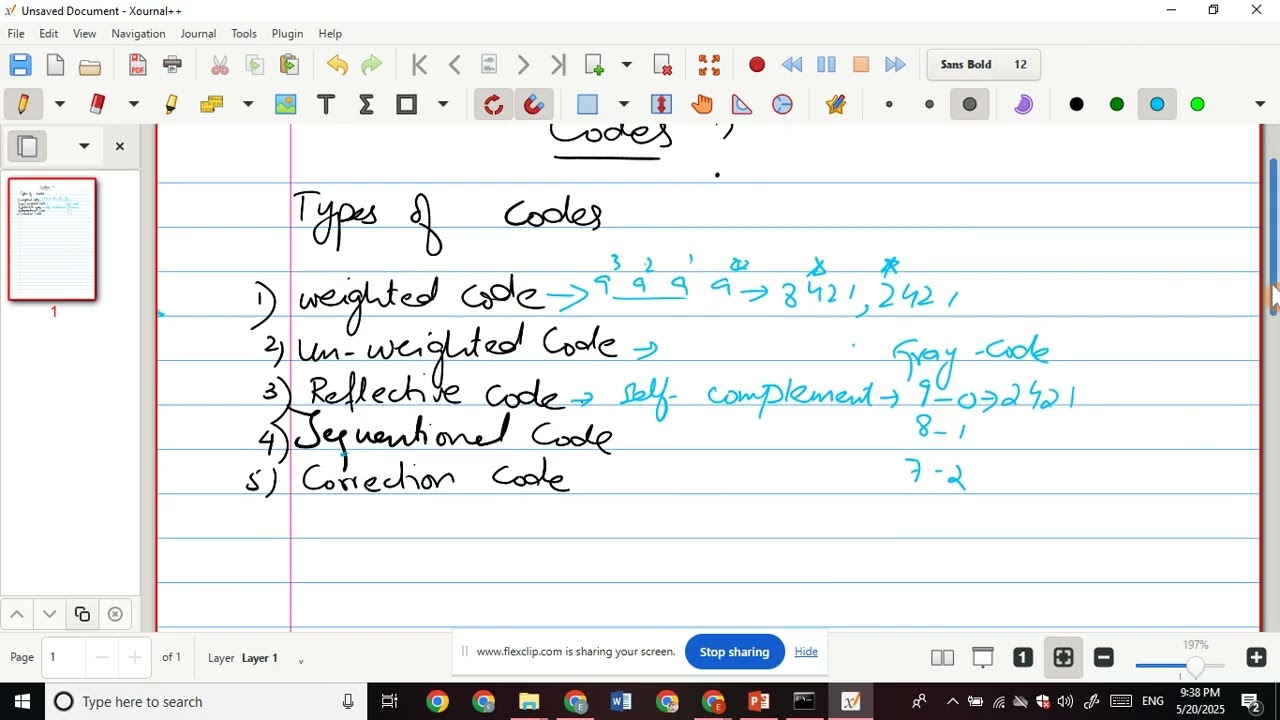 Unsaved Document - Xournal++
File Edit View Navigation Journal Tools Plugin Help
PDF
Sans Bold 12
T Σ
Codes ?
Types of Codes
3 2 1
1) weighted Code → 9 9 9 9 → 8421, 2421
2) Un-weighted Code → Gray-Code
3) Reflective Code → self-complement → 9-0→2421
8-1
4) Sequentional Code
5) Correction Code
7-2
1
Page 1 of 1 Layer Layer 1
www.flexclip.com is sharing your screen. Stop sharing Hide
197%
Type here to search
ENG
9:38 PM
5/20/2025
2